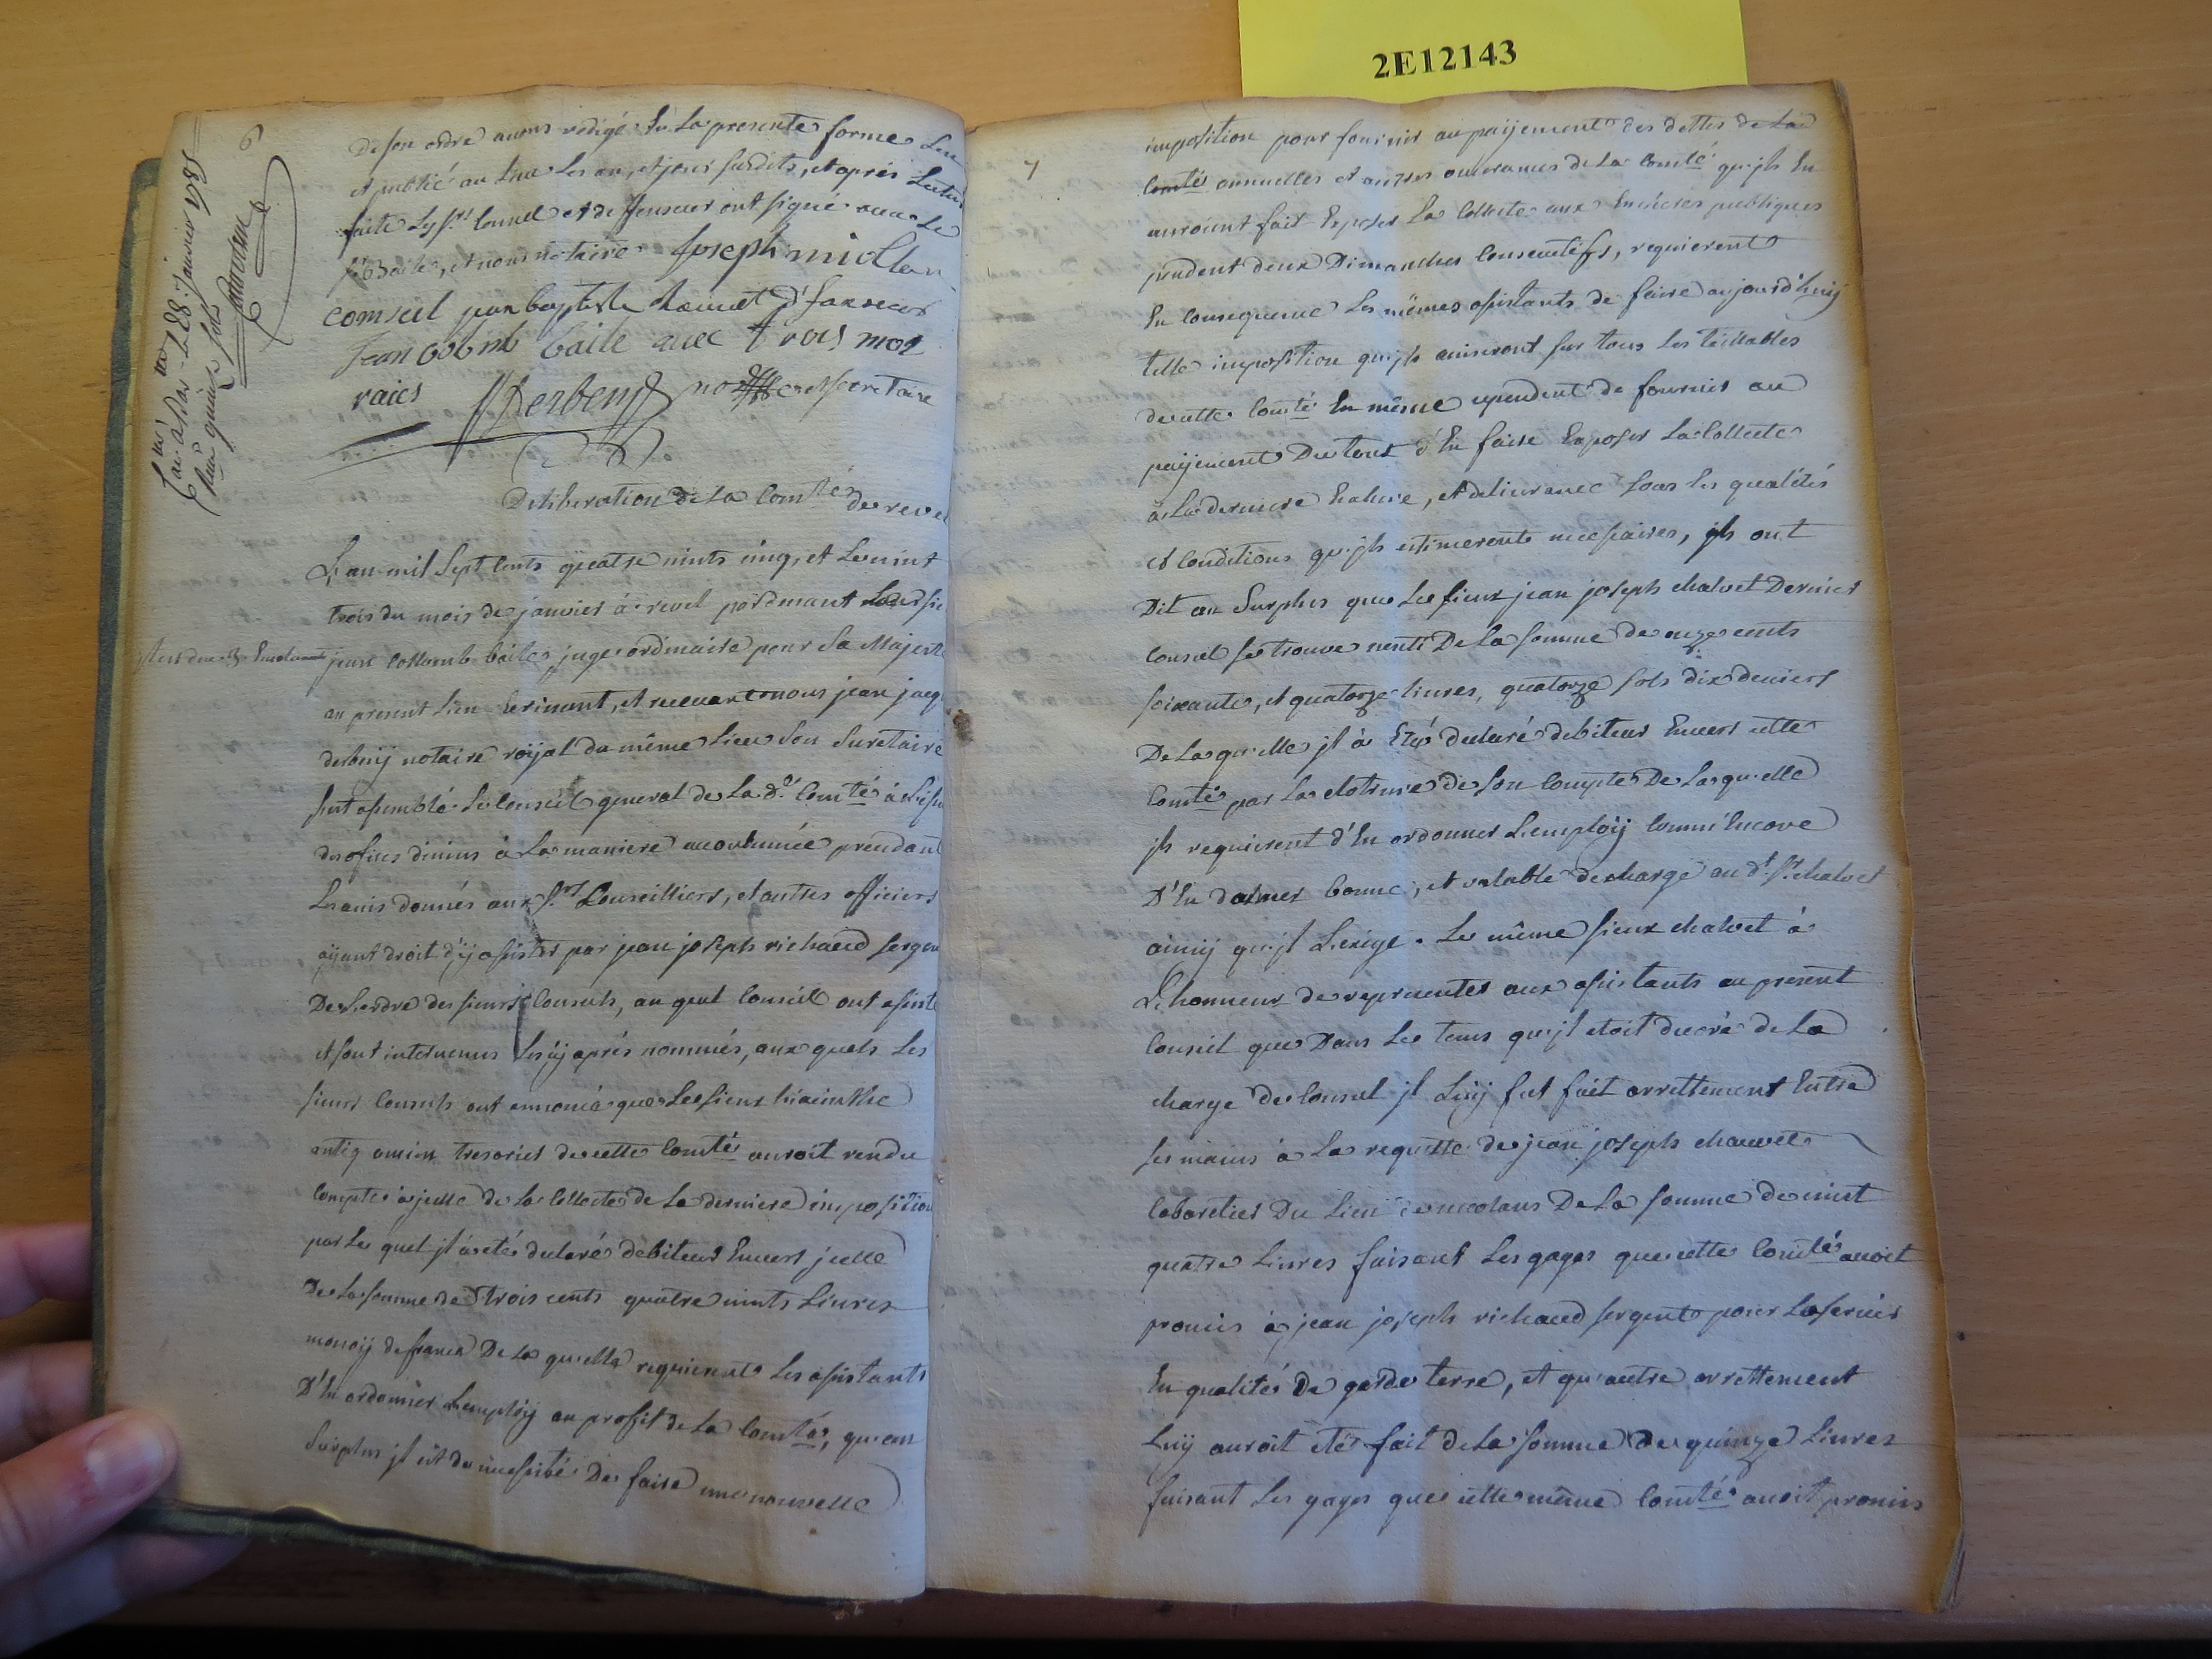 2E12143
6
De son ordre avons redigé En La presente forme Leu
et publié au Lieu Les an, et jour susdits, et après Lectur
faite Ly Srs Consul et deffenseur ont signé avec Le
Sr Baile, et nous notaire Joseph miollan
consul jean baptiste Honnet d'fanseur
Jean Colomb baile avec trois mot
raiés Derbesy notre et secretaire
Con.lé a Seine Le 28. janvier 1785
Reçu quinze sols
Deliberation de La Comté de revel
L'an mil Sept Cents quatre vints cinq, et Le vint
trois du mois de janvier à revel pardevant Le Sr
jean Collomb baile juge ordinaire pour Sa Majesté
au present Lieu Ecrivant, et recevant nous jean jacq
derbesij notaire roijal du même Lieu Son Secretaire
s'est assemblé Le Conseil general de La de Comté à L'issu
des offices divins à La maniere accoutumée prendant
Les avis donnés aux Srs Conseilliers, et autres officiers
aijant droit d'ij assister par jean joseph richaud sergen
De L'ordre des sieurs Consuls, au quel Conseil ont assisté
et sont intervenus Les cij après nommés, aux quels Les
sieurs Consuls ont annoncé que Le sieur hiacinthe
antiq ancien tresorier de cette Comté auroit rendu
Compte à jcelle de La Collecte de La derniere imposition
par Le quel jl à eté declaré debiteur Envers jcelle
De La somme de trois cents quatre vints Livres
monoij de france De La quelle requierent Les assistants
D'En ordonner L'emploij au profit de La Comté, qu'au
Surplus jl est de necessité De faire une nouvelle
7
imposition pour fournir au paijement des dettes de La
Comté annuelles et autres ouvrances de La Comté qu'jls En
auroient fait Exposer La Collecte aux Encheres publiques
pendent deux Dimanches Consecutifs, requierent
En Consequence Les mêmes assistants de faire aujourd'huij
telle imposition qu'jls aviseront sur tous Les taillables
de cette Comté En même cependent de fournir au
paijement Du tout d'En faire Exposer La Collecte
à La derniere Enchere, et delivrance sous Les qualités
et Conditions qu'jls estimeronts necessaires, jls ont
Dit au Surplus que Le sieur jean joseph chalvet Dernier
Consul se trouve nenti De La somme de onze cents
soixante, et quatorze Livres, quatorze sols dix deniers
De La quelle jl à Eté declaré debiteur Envers cette
Comté par La cloture de son Compte De La quelle
jls requierent d'En ordonner L'emploij Comm'Encore
D'En donner bonne, et valable decharge au dt Sr chalvet
ainsij qu'jl L'exige. Le même sieur chalvet à
L'honneur de representer aux assistants au present
Conseil que Dans Le tems qu'jl etoit decoré de La
charge de Consul jl Luij fut fait arrettement Entre
ses mains à La requette de jean joseph chauvet
Cabaretier Du Lieu de meolans De La somme de vint
quatre Livres faisant Les gages que cette Comté avoit
promis à jean joseph richaud sergent pour Le servir
En qualité De garde terre, et qu'autre arrettement
Luij auroit eté fait de La somme de quinze Livres
faisant Les gages que cette même Comté avoit promis